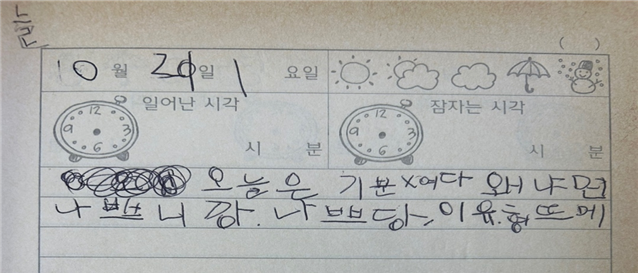 ( )
10 월 29 일 1 요일
12
9 3
6
일어난 시각
시 분
12
9 3
6
잠자는 시각
시 분
오늘은 기분x여다 왜냐면
나쁘니깡. 나쁘당, 이유.형뜨메